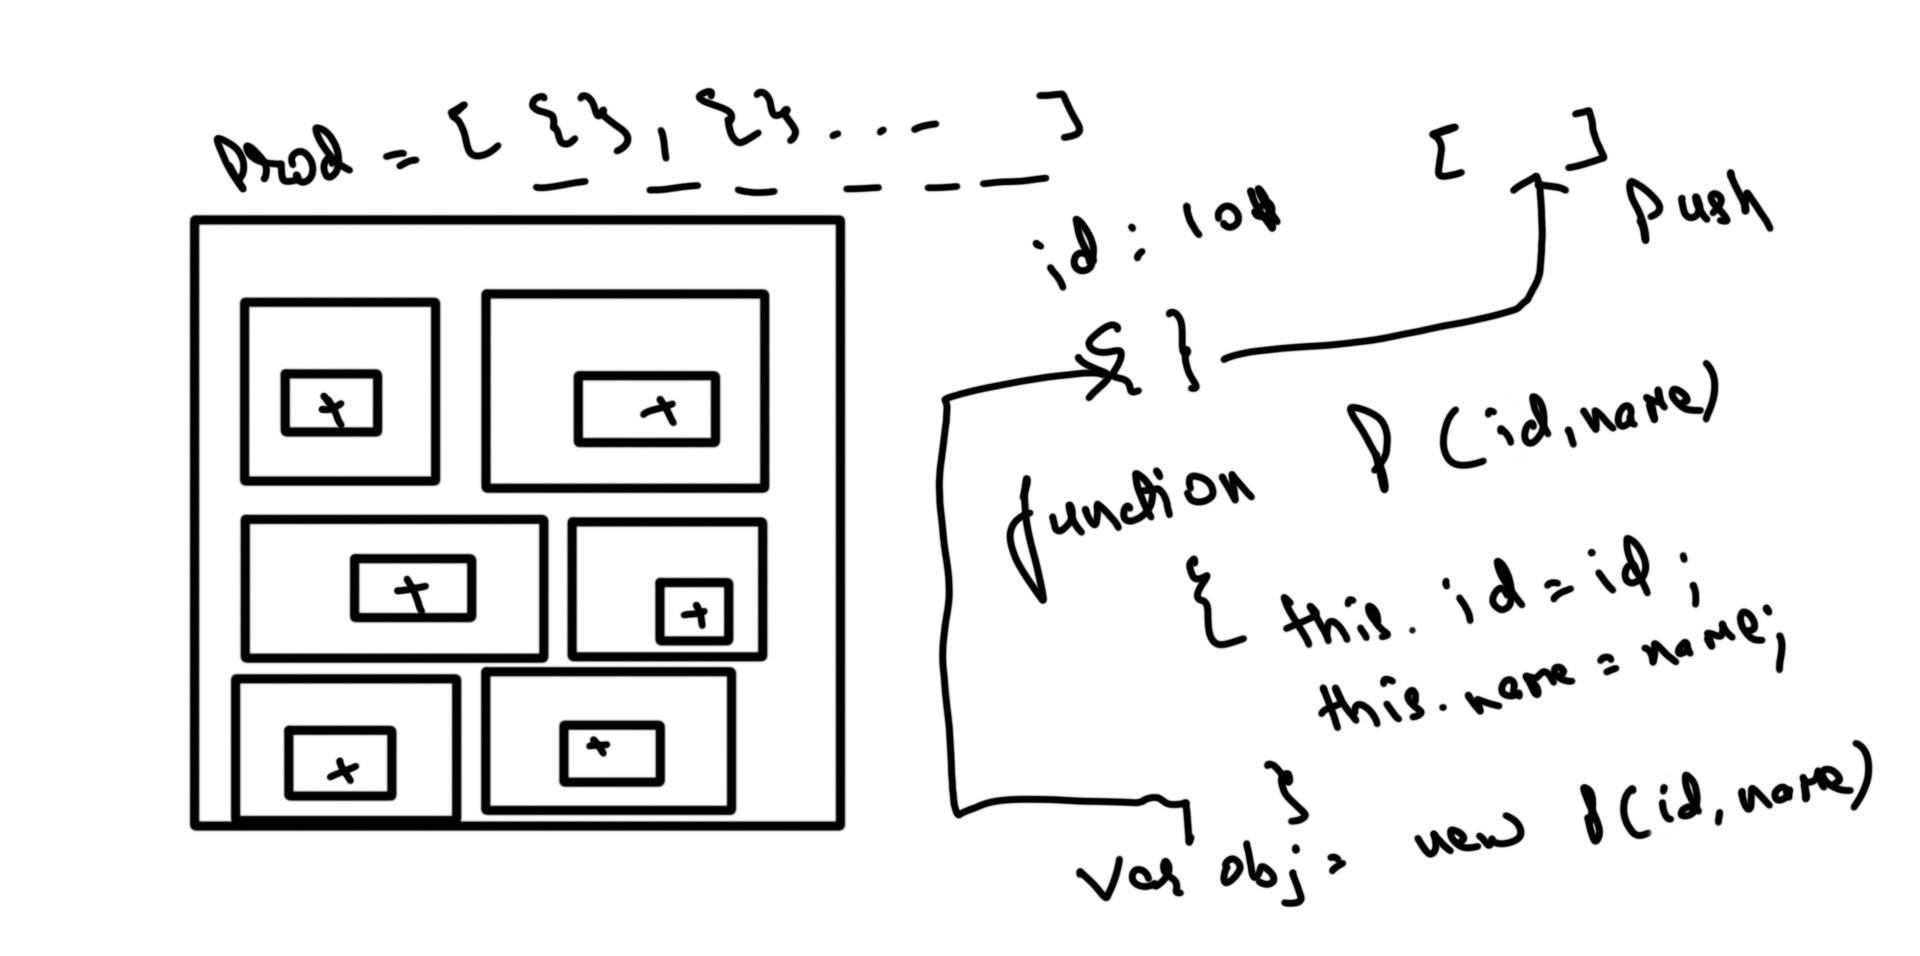 Prod = [ {}, {}... ]
[ ]
Push
id :
{ }
function P (id, name)
{ this. id = id ;
this. name = name;
}
var obj = new P(id, name)
+
+
+
+
+
+